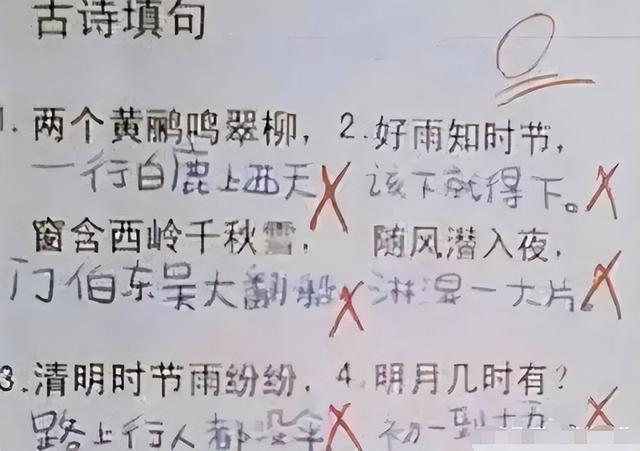 古诗填句
0
1. 两个黄鹂鸣翠柳，
一行白鹿上西天
窗含西岭千秋雪，
门伯东吴大翻船
2. 好雨知时节，
该下就得下。
随风潜入夜，
淋湿一大片。
3. 清明时节雨纷纷，
路上行人都没伞
4. 明月几时有？
初一到十五。